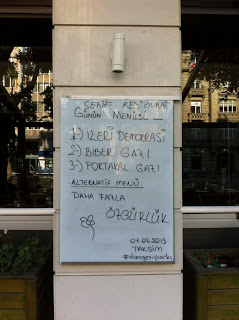 ŞERAF RESTAURANT
GÜNÜN MENÜSÜ
1-) İLERİ DEMOKRASİ
2-) BİBER GAZI
3-) PORTAKAL GAZI
ALTERNATİF MENÜ
DAHA FAZLA
ÖZGÜRLÜK
01.06.2013
TAKSİM
#direngeziparkı